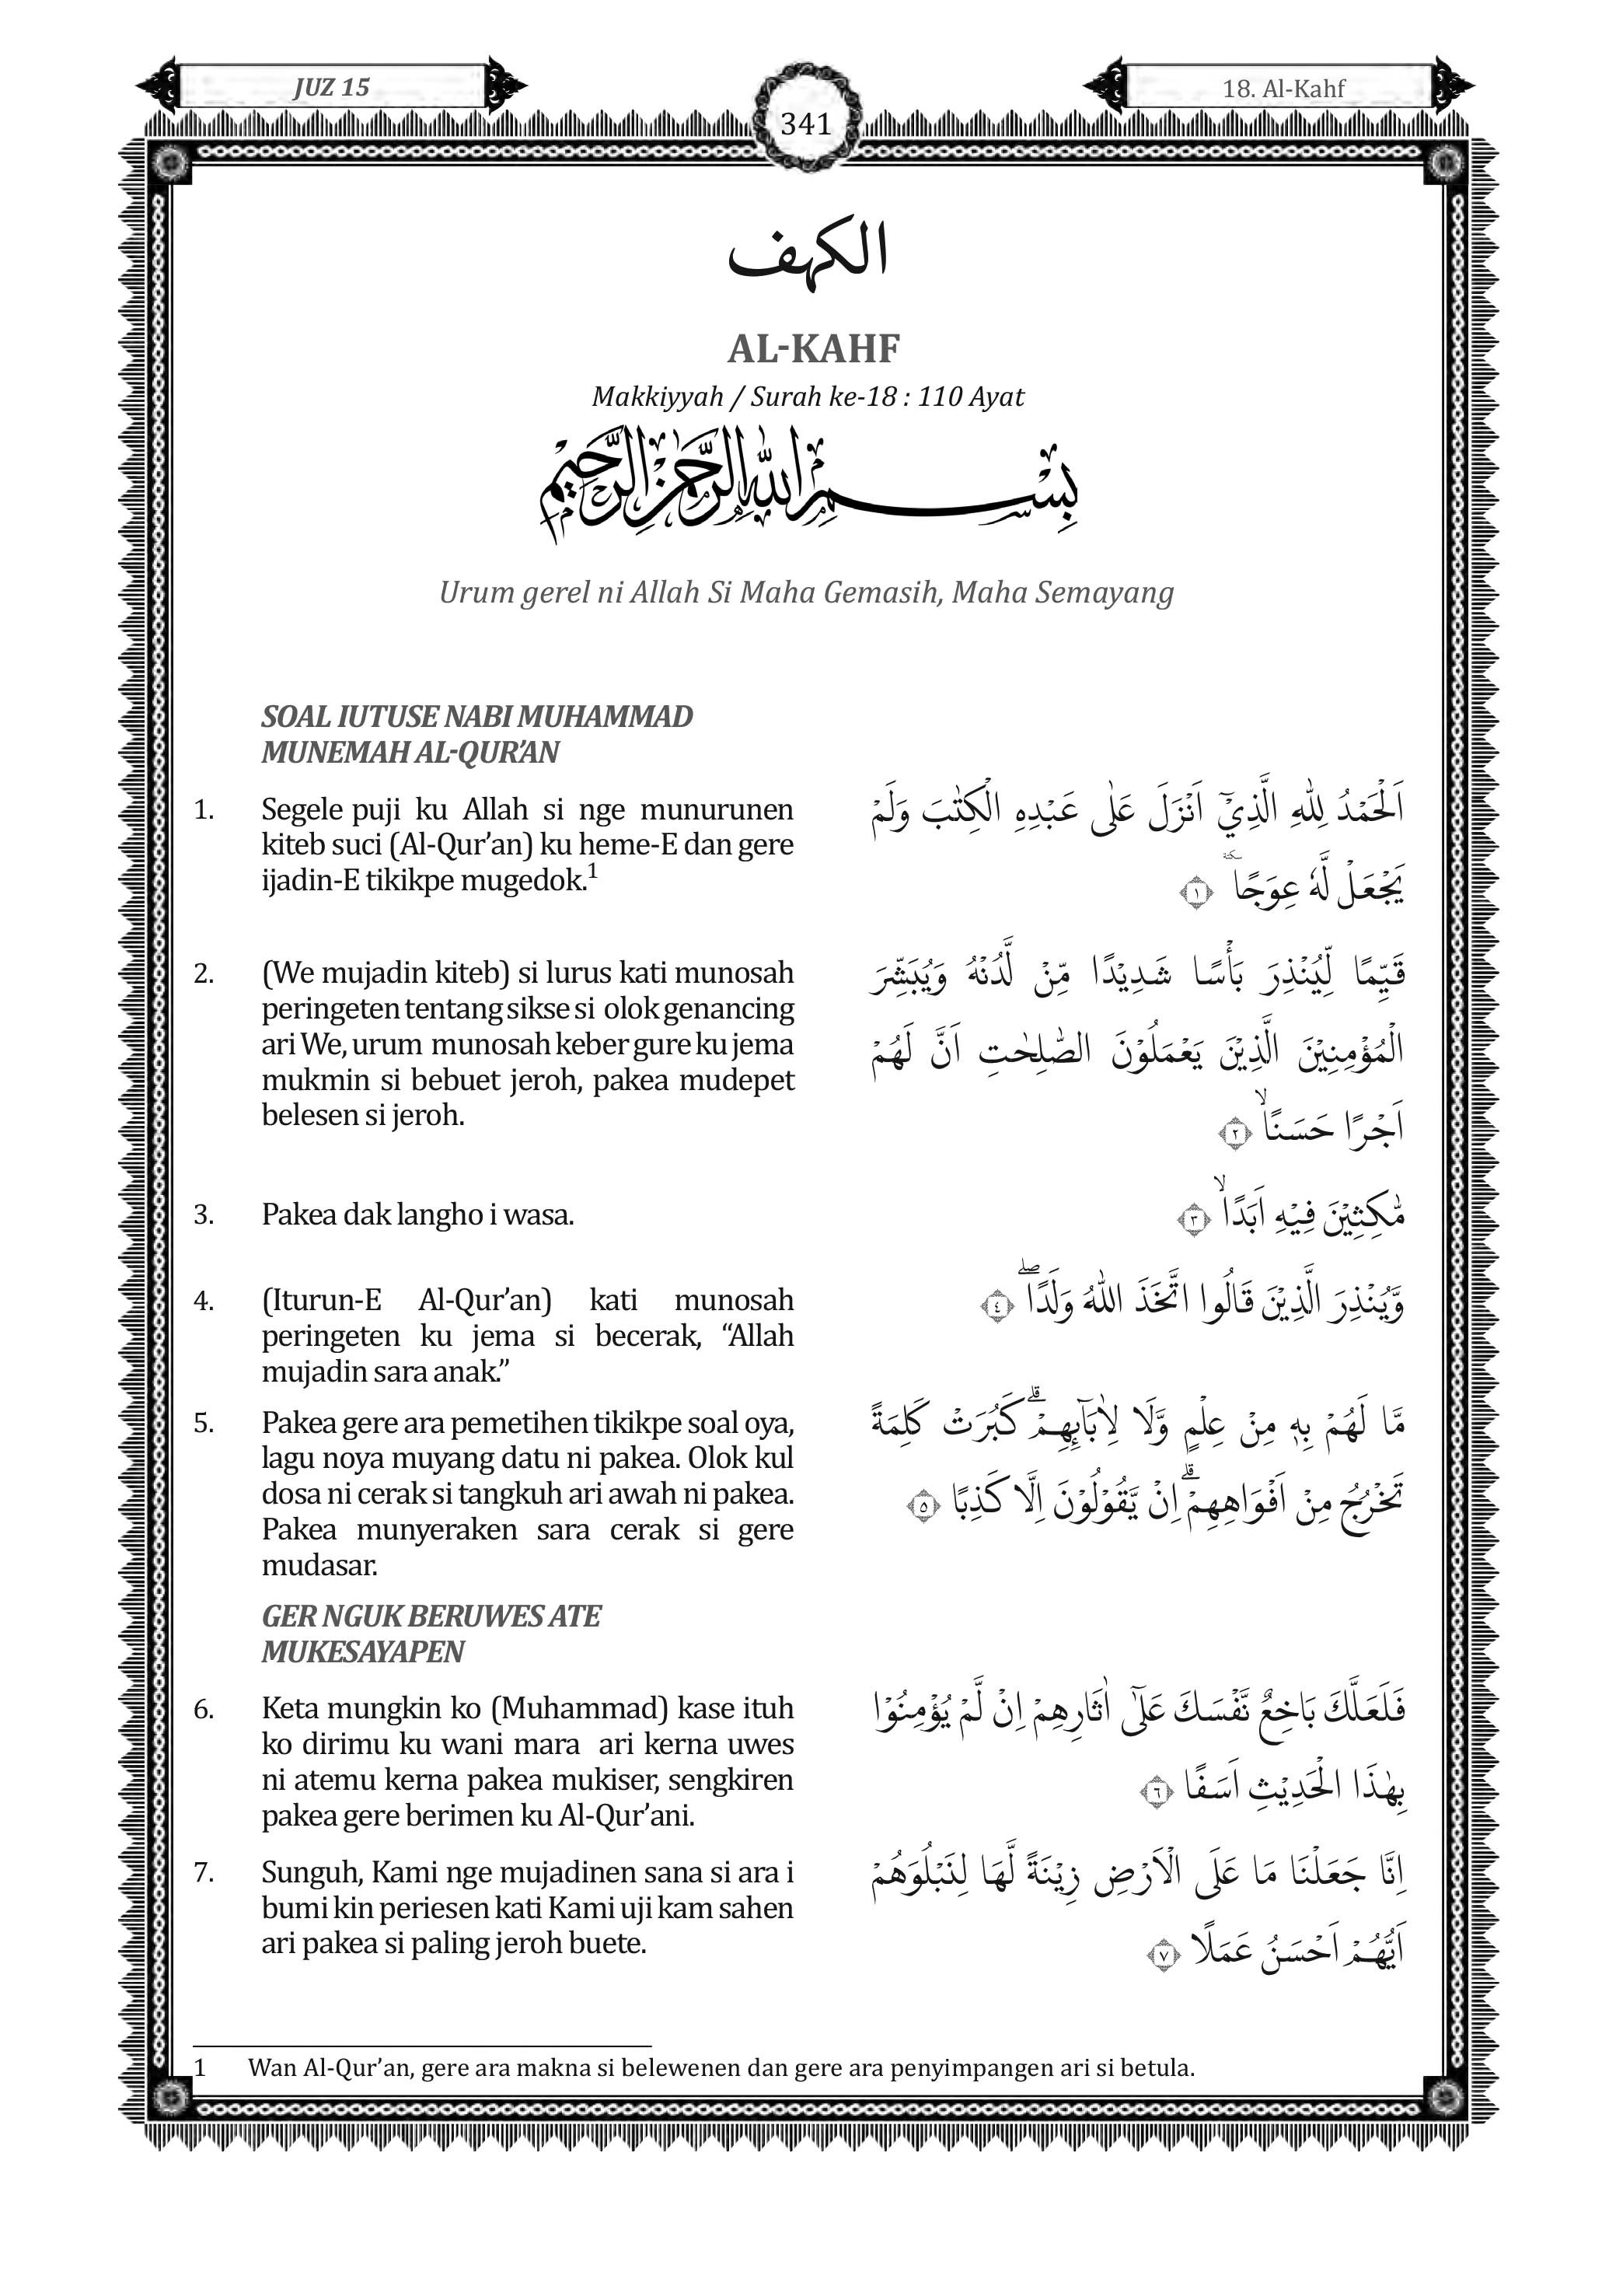 JUZ 15
18. Al-Kahf
341
الكهف
AL-KAHF
Makkiyyah / Surah ke-18 : 110 Ayat
بِسْمِ اللّٰهِ الرَّحْمٰنِ الرَّحِيْمِ
Urum gerel ni Allah Si Maha Gemasih, Maha Semayang
SOAL IUTUSE NABI MUHAMMAD
MUNEMAH AL-QUR’AN
1. Segele puji ku Allah si nge munurunen
kiteb suci (Al-Qur’an) ku heme-E dan gere
ijadin-E tikikpe mugedok.1
اَلْحَمْدُ لِلّٰهِ الَّذِيْٓ اَنْزَلَ عَلٰى عَبْدِهِ الْكِتٰبَ وَلَمْ
يَجْعَلْ لَّهٗ عِوَجًا ۜ ١
2. (We mujadin kiteb) si lurus kati munosah
peringeten tentang sikse si olok genancing
ari We, urum munosah keber gure ku jema
mukmin si bebuet jeroh, pakea mudepet
belesen si jeroh.
قَيِّمًا لِّيُنْذِرَ بَأْسًا شَدِيْدًا مِّنْ لَّدُنْهُ وَيُبَشِّرَ
الْمُؤْمِنِيْنَ الَّذِيْنَ يَعْمَلُوْنَ الصّٰلِحٰتِ اَنَّ لَهُمْ
اَجْرًا حَسَنًاۙ ٢
3. Pakea dak langho i wasa.
مّٰكِثِيْنَ فِيْهِ اَبَدًاۙ ٣
4. (Iturun-E Al-Qur’an) kati munosah
peringeten ku jema si becerak, “Allah
mujadin sara anak.”
وَّيُنْذِرَ الَّذِيْنَ قَالُوا اتَّخَذَ اللّٰهُ وَلَدًاۖ ٤
5. Pakea gere ara pemetihen tikikpe soal oya,
lagu noya muyang datu ni pakea. Olok kul
dosa ni cerak si tangkuh ari awah ni pakea.
Pakea munyeraken sara cerak si gere
mudasar.
مَّا لَهُمْ بِهٖ مِنْ عِلْمٍ وَّلَا لِاٰبَاۤىِٕهِمْۗ كَبُرَتْ كَلِمَةً
تَخْرُجُ مِنْ اَفْوَاهِهِمْۗ اِنْ يَّقُوْلُوْنَ اِلَّا كَذِبًا ٥
GER NGUK BERUWES ATE
MUKESAYAPEN
6. Keta mungkin ko (Muhammad) kase ituh
ko dirimu ku wani mara ari kerna uwes
ni atemu kerna pakea mukiser, sengkiren
pakea gere berimen ku Al-Qur’ani.
فَلَعَلَّكَ بَاخِعٌ نَّفْسَكَ عَلٰٓى اٰثَارِهِمْ اِنْ لَّمْ يُؤْمِنُوْا
بِهٰذَا الْحَدِيْثِ اَسَفًا ٦
7. Sunguh, Kami nge mujadinen sana si ara i
bumi kin periesen kati Kami uji kam sahen
ari pakea si paling jeroh buete.
اِنَّا جَعَلْنَا مَا عَلَى الْاَرْضِ زِيْنَةً لَّهَا لِنَبْلُوَهُمْ
اَيُّهُمْ اَحْسَنُ عَمَلًا ٧
1 Wan Al-Qur’an, gere ara makna si belewenen dan gere ara penyimpangen ari si betula.